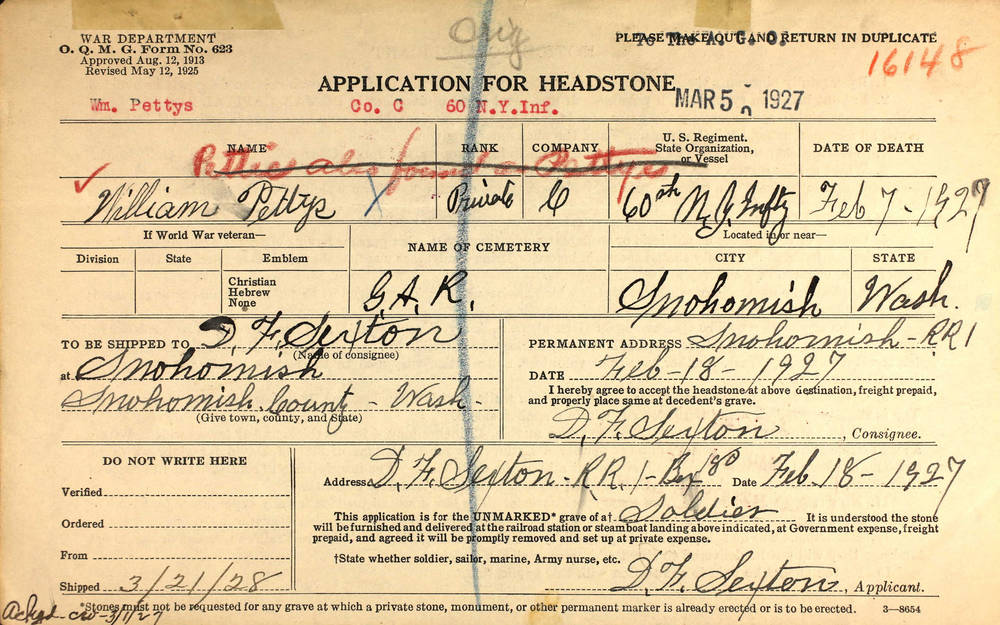 Orig
WAR DEPARTMENT
O. Q. M. G. Form No. 623
Approved Aug. 12, 1913
Revised May 12, 1925
PLEASE MAKE OUT AND RETURN IN DUPLICATE
To The A. G. O.
16148
APPLICATION FOR HEADSTONE
MAR 5 1927
Wm. Pettys Co. C 60 N.Y.Inf.
NAME RANK COMPANY U. S. Regiment. State Organization, or Vessel DATE OF DEATH
Pettie also found as Pettys
William Pettys Private C 60th N.Y. Infty Feb 7-1927
If World War veteran—
Division State Emblem
Christian
Hebrew
None
NAME OF CEMETERY
G.A.R.
Located in or near—
CITY STATE
Snohomish Wash.
TO BE SHIPPED TO D. F. Sexton
(Name of consignee)
at Snohomish
Snohomish County - Wash -
(Give town, county, and State)
PERMANENT ADDRESS Snohomish - RR 1
DATE Feb-18-1927
I hereby agree to accept the headstone at above destination, freight prepaid,
and properly place same at decedent's grave.
D. F. Sexton, Consignee.
DO NOT WRITE HERE
Verified
Ordered
From
Shipped 3/21/28
Address D. F. Sexton - RR. 1 - Bx 180 Date Feb. 18-1927
This application is for the UNMARKED* grave of a† Soldier It is understood the stone
will be furnished and delivered at the railroad station or steamboat landing above indicated, at Government expense, freight
prepaid, and agreed it will be promptly removed and set up at private expense.
†State whether soldier, sailor, marine, Army nurse, etc.
D. F. Sexton, Applicant.
*Stones must not be requested for any grave at which a private stone, monument, or other permanent marker is already erected or is to be erected. 3—8654
Ackgd-cw-3/1/27